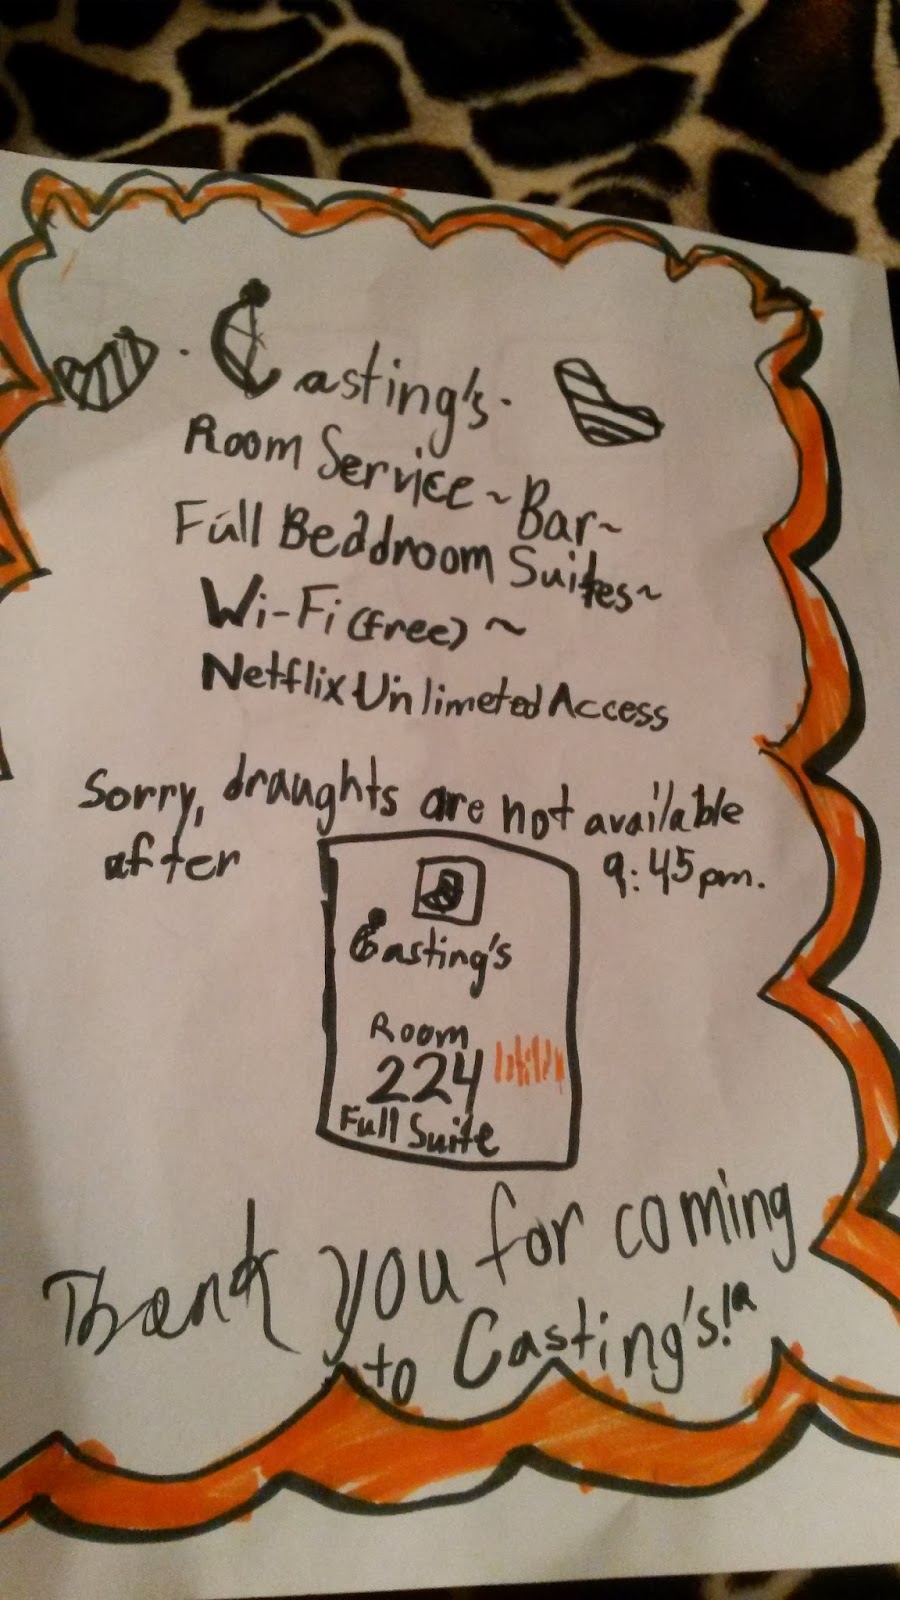 · Casting's ·
Room Service ~ Bar ~
Full Beddroom Suites ~
Wi-Fi (free) ~
Netflix Unlimeted Access
Sorry, draughts are not available
after 9:45pm.
Casting's
Room
224
Full Suite
Thank you for coming
to Casting's!